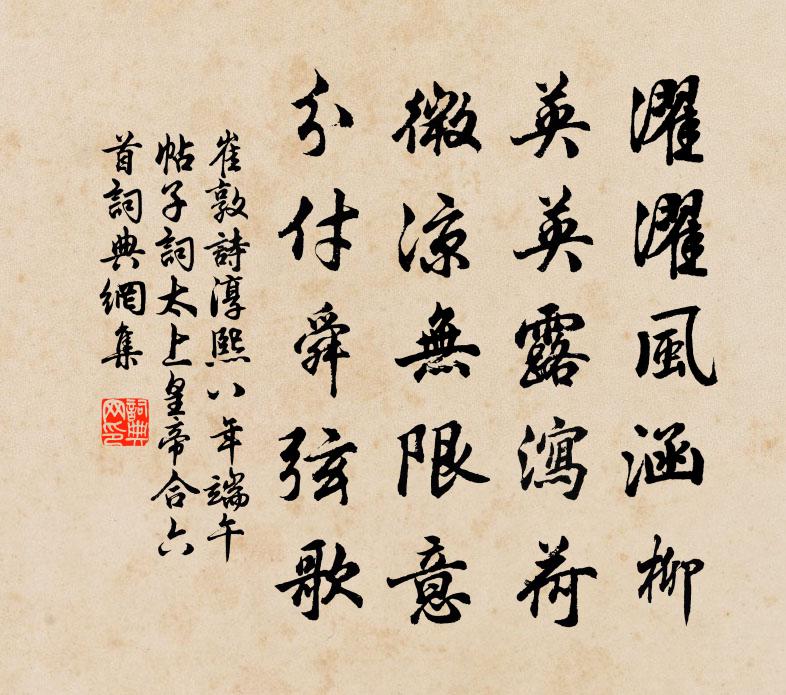 濯濯風涵柳
英英露瀉荷
微涼無限意
分付舜弦歌
崔敦詩淳熙八年端午
帖子詞太上皇帝合六
首詞典網集
詞典
网印